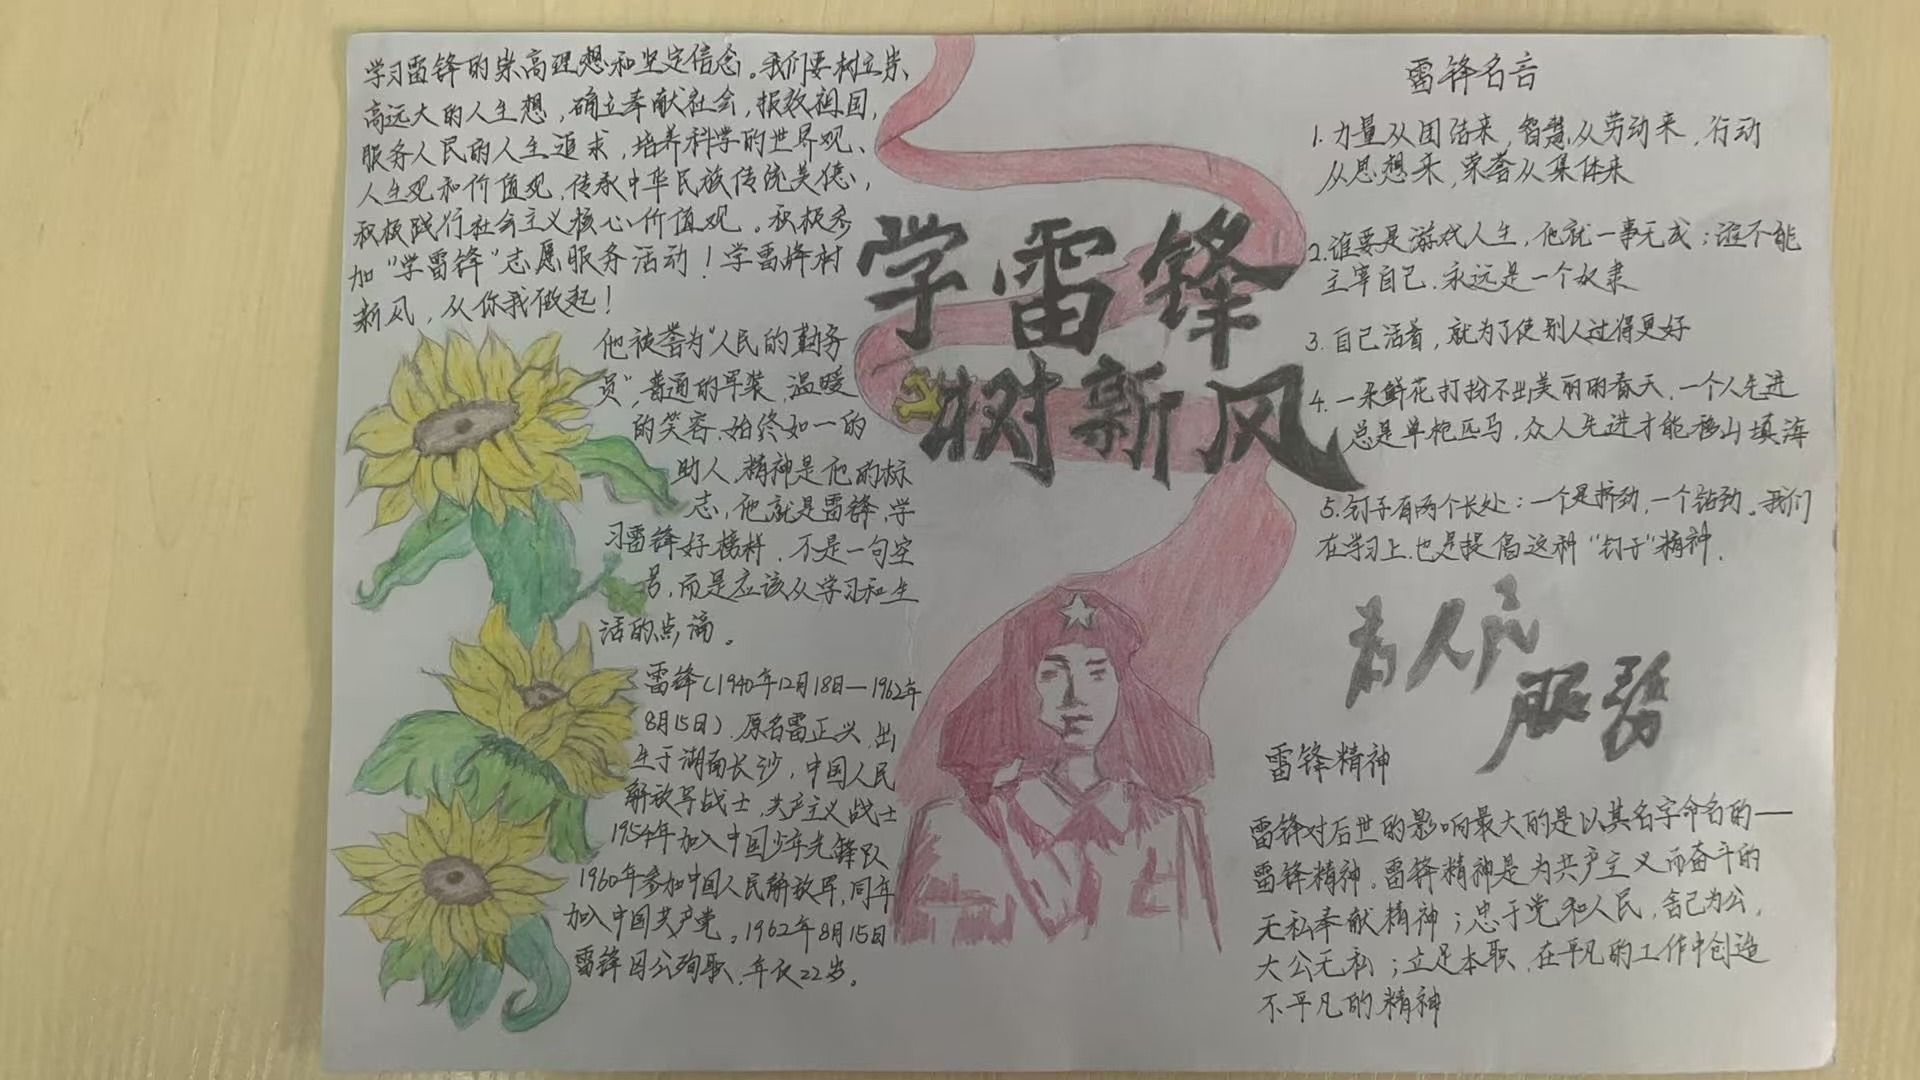 学习雷锋的崇高理想和坚定信念。我们要树立崇
高远大的人生想，确立奉献社会，报效祖国，
服务人民的人生追求，培养科学的世界观、
人生观和价值观，传承中华民族传统美德，
积极践行社会主义核心价值观。积极参
加“学雷锋”志愿服务活动！学雷锋树
新风，从你我做起！
他被誉为“人民的勤务
员”，普通的军装，温暖
的笑容，始终如一的
助人精神是他的标
志，他就是雷锋，学
习雷锋好榜样，不是一句空
号，而是应该从学习和生
活的点滴。
雷锋（1940年12月18日—1962年
8月15日），原名雷正兴，出
生于湖南长沙，中国人民
解放军战士，共产主义战士
1954年加入中国少年先锋队
1960年参加中国人民解放军，同年
加入中国共产党。1962年8月15日
雷锋因公殉职，年仅22岁。
学雷锋
树新风
雷锋名言
1.力量从团结来，智慧从劳动来，行动
从思想来，荣誉从集体来
2.谁要是游戏人生，他就一事无成；谁不能
主宰自己，永远是一个奴隶
3.自己活着，就为了使别人过得更好
4.一朵鲜花打扮不出美丽的春天，一个人先进
总是单枪匹马，众人先进才能移山填海
5.钉子有两个长处：一个是挤劲，一个钻劲。我们
在学习上，也是提倡这种“钉子”精神．
为人民
服务
雷锋精神
雷锋对后世的影响最大的是以其名字命名的——
雷锋精神。雷锋精神是为共产主义而奋斗的
无私奉献精神；忠于党和人民，舍己为公，
大公无私；立足本职，在平凡的工作中创造
不平凡的精神